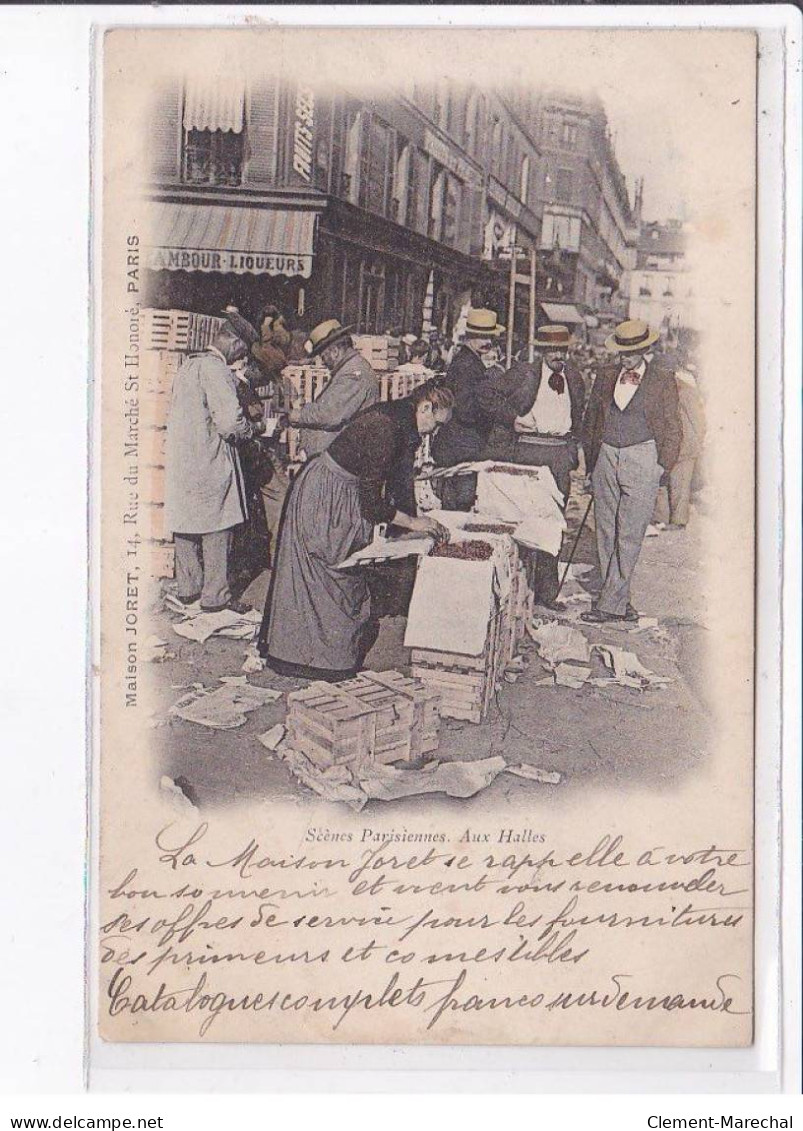 FRUITS-SECS
AMBOUR·LIQUEURS
Maison JORET, 14, Rue du Marché St Honoré, PARIS
Scènes Parisiennes. Aux Halles
La Maison Joret se rappelle à votre
bon souvenir et vient vous renouveler
ses offres de service pour les fournitures
des primeurs et comestibles
Catalogues complets franco sur demande
Clement-Marechal